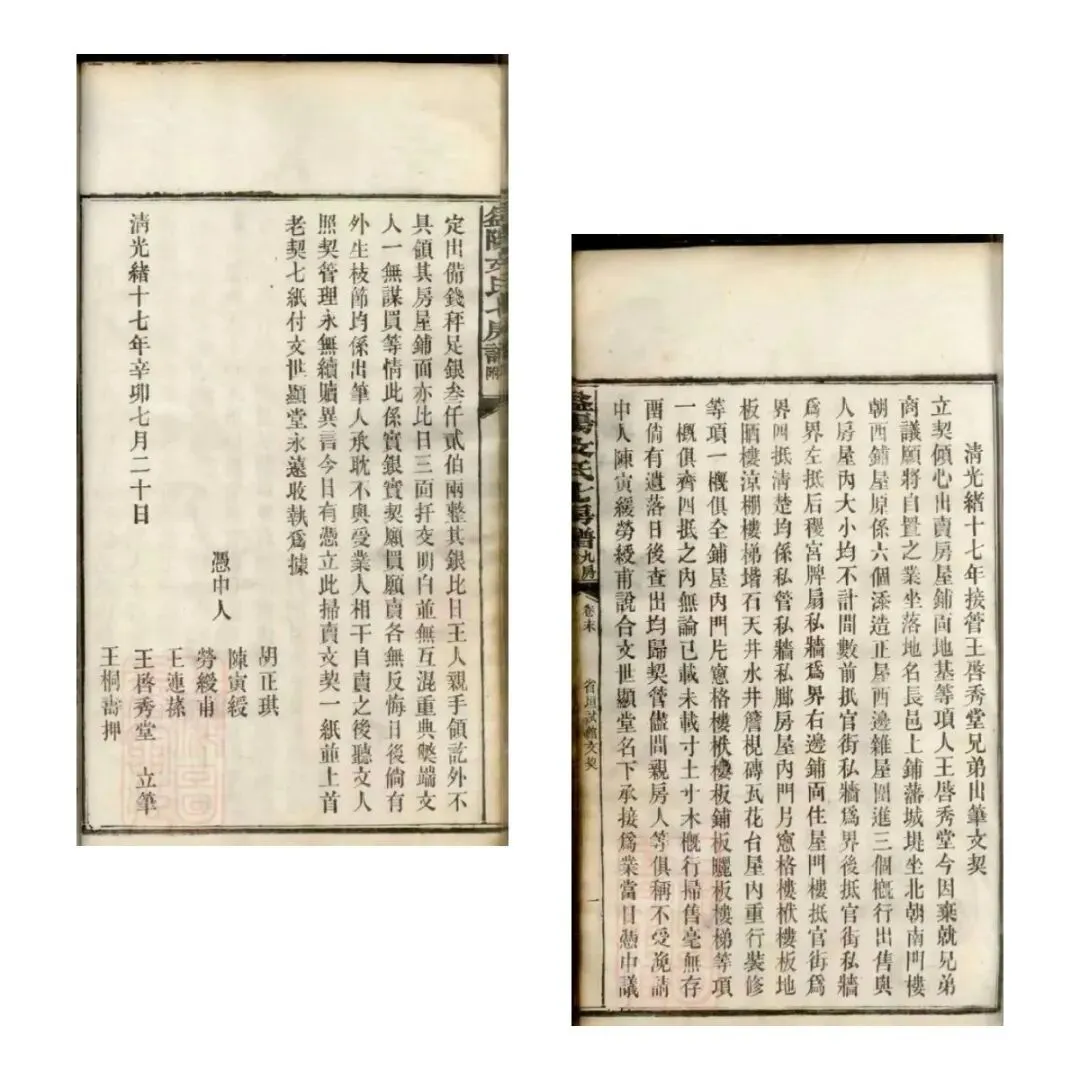 清光緒十七年接管王啓秀堂兄弟出筆文契
立契傾心出賣房屋鋪面地基等項人王啓秀堂今因棄就兄弟
商議願將自置之業坐落地名長邑上鋪藩城堤坐北朝南門樓
朝西鋪屋原係六個添造正屋西邊雜屋圍進三個概行出售與
人房屋內大小均不計間數前抵官街私牆爲界後抵官街私牆
爲界左抵后稷宮牌扇私牆爲界右邊鋪面住屋門樓抵官街爲
界四抵清楚均係私管私牆私腳房屋內門片窻格樓栿樓板地
板晒樓涼棚樓梯堦石天井水井簷梘磚瓦花台屋內重行裝修
等項一概俱全鋪屋內門片窻格樓栿樓板鋪板曬板樓梯等項
一概俱齊四抵之內無論已載未載寸土寸木概行掃售毫無存
畱倘有遺落日後查出均歸契管儘問親房人等俱稱不受浼請
中人陳寅緩勞綬甫說合文世顯堂名下承接爲業當日憑中議
益陽文氏七房譜 九房 卷末
省垣試館文契
一
定出備錢秤足銀叁仟貳伯兩整其銀比日王人親手領訖外不
具領其房屋鋪面亦比日三面扦交明白並無互混重典弊端文
人一無謀買等情此係實銀實契願買願賣各無反悔日後倘有
外生枝節均係出筆人承耽不與受業人相干自賣之後聽文人
照契管理永無續贖異言今日有憑立此掃賣文契一紙並上首
老契七紙付文世顯堂永遠收執爲據
憑中人
胡正琪
陳寅綬
勞綬甫
王連蓀
王啓秀堂 立筆
王桐壽押
清光緒十七年辛卯七月二十日
益陽文氏七房譜